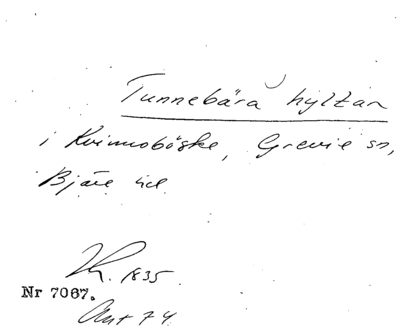 Tunnebära hyltan
i Kvinnoböske, Grevie sn,
Bjäre hd
Kr. 1835.
Nr 7067.
Ant 74